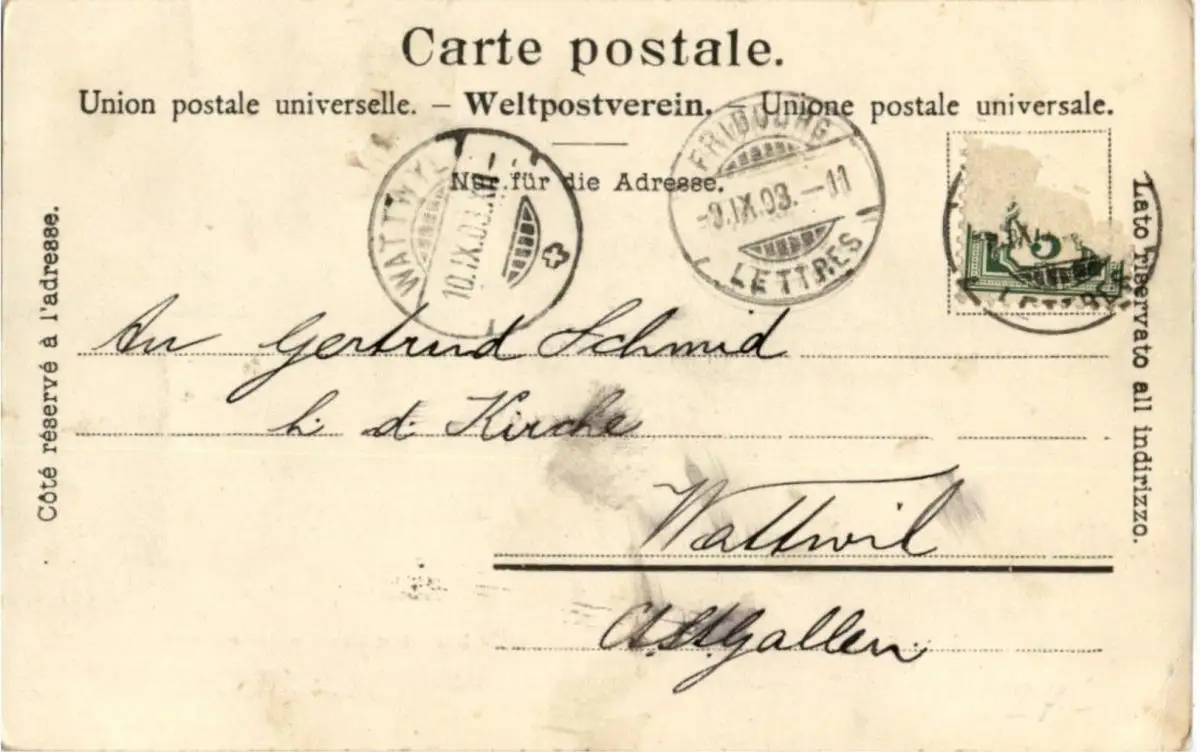 Carte postale.
Union postale universelle. – Weltpostverein. – Unione postale universale.
Nur für die Adresse.
Côté réservé à l'adresse.
Lato riservato all indirizzo.
WATTWYL
10.IX.03.XII
FRIBOURG
-9.IX.03.-11
LETTRES
5
IX
LETTRES
An Gertrud Schmid
b. d. Kirche
Wattwil
Ct. St. Gallen